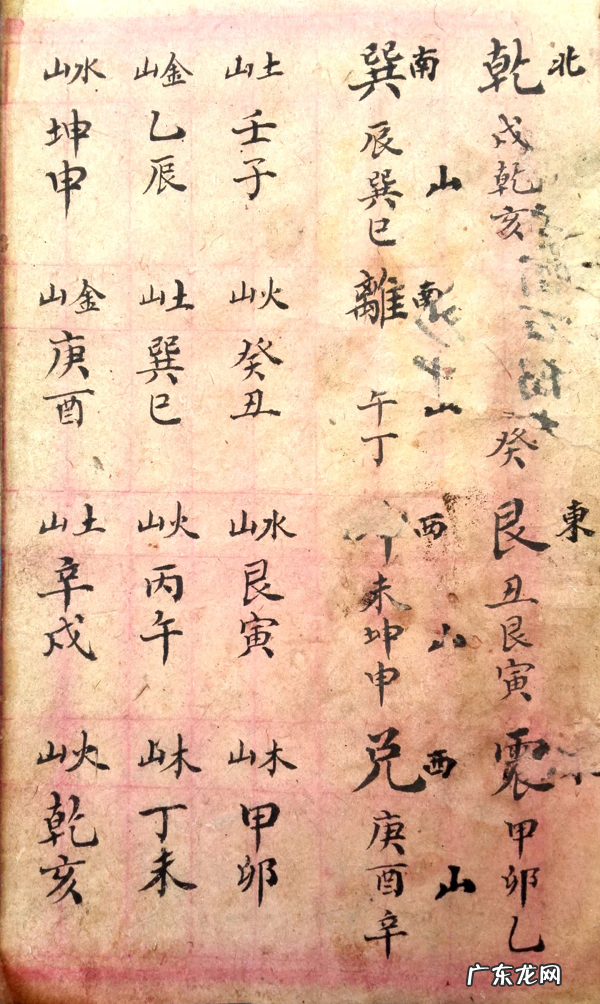 北 東
乾 戌乾亥 癸 艮 丑艮寅 震 甲卯乙
南 山 南 山 西 山 西 山
巽 辰巽巳 離 午丁 未坤申 兌 庚酉辛
土山 壬子 火山 癸丑 水山 艮寅 木山 甲卯
金山 乙辰 土山 巽巳 火山 丙午 木山 丁未
水山 坤申 金山 庚酉 土山 辛戌 火山 乾亥
广东龙网